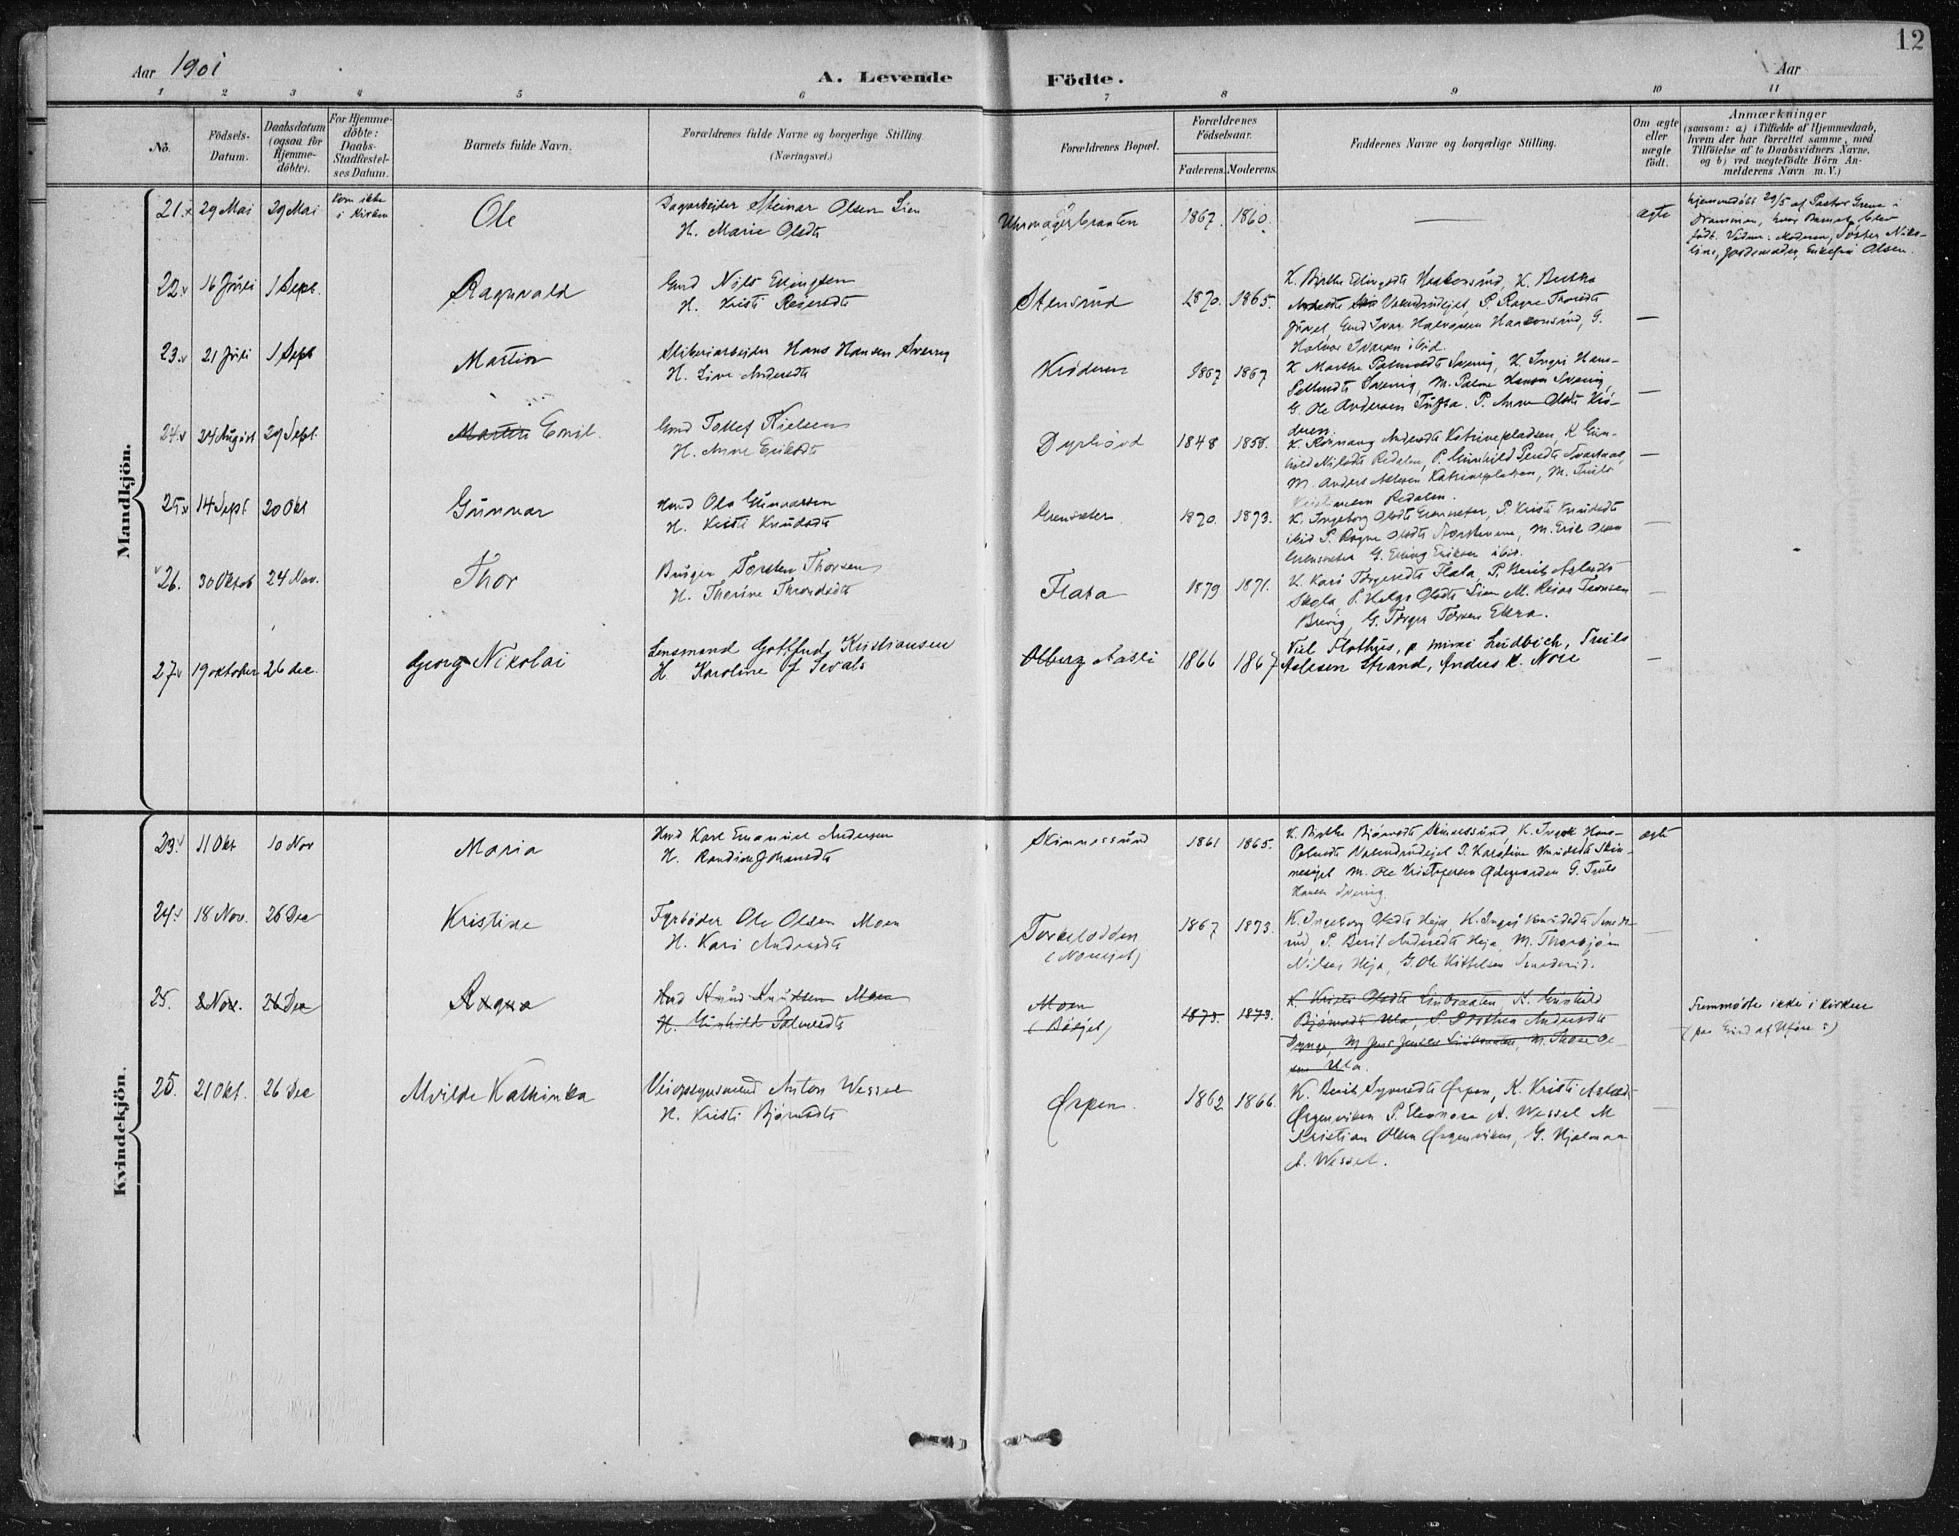 12
Aar 1901
A. Levende
Födte.
Aar
1 2 3 4 5 6 7 8 9 10 11
Nō.
Födsels-
Datum.
Daabsdatum
(ogsaa for
Hjemme-
döbte).
For Hjemme-
döbte:
Daabs-
Stadfæstel-
ses Datum.
Barnets fulde Navn.
Forældrenes fulde Navne og borgerlige Stilling.
(Næringsvei.)
Forældrenes Bopæl.
Forældrenes
Födselsaar.
Faderens. Moderens.
Faddernes Navne og borgerlige Stilling.
Om ægte
eller
uægte
födt.
Anmærkninger
(saasom: a) i Tilfælde af Hjemmedaab,
hvem der har forrettet samme, med
Tilföielse af to Daabsvidners Navne,
og b) ved uægtefödte Börn An-
melderens Navn m. V.)
Mandkjön.
21. 29 Mai 29 Mai Kom ikke
i Kirken
Ole
Dagarbeider Steinar Olsen Lien
H. Marie Olsdt
Uhrmagerbraaten 1867. 1860.
ægte
hjemmedøbt 29/5 af Pastor Greve i
Drammen, hvor Barnet blev
født. Vidner: Moderen, Søster Niko-
line, Jordemoder, Enkefru Olsen.
22. 16 Juli 1 Sept.
Ragnvald
Gmd Nils Ellingsen
H. Kristi Reiersdt
Stensrud 1870. 1865.
K. Birthe Elingsdt Haakonsund, K. Berthe
P. Ragne Thorsdt
Juvet, Gmd Ivar Halvorsen Haakonsund, G.
Halvor Ivarsen ibid.
23. 21 Juli 1 Sept
Martin
Sliberiarbeider Hans Hansen Sverig
H. Live Andersdt
Krøderen 1867 1867
K. Marthe Palmesdt Sverig, K. Ingri Hans-
Sverig, M. Palme Hansen Sverig,
G. Ole Andersen Tufta. P. Anne Olsdt Krø-
deren.
24. 24 August 29 Sept.
Martin Emil.
Gmd Tollef Nielsen
H. Anne Eriksdt
1848 1855.
K. Rønnaug Andersdt Katrinepladsen, K Gun-
hild Nilsdt Redalen, P. Gunhild Persdt Svartaas,
M. Anders Katrinepladsen, M. Truls
Kristiansen Redalen.
25. 14 Sept 20 Okt
Gunnar
Hmd Ole Gunnarsen
H. Kristi Knudsdt
Grenseter. 1870. 1873.
K. Ingeborg Olsdt Grenseter, P. Kristi Knudsdt
ibid P. Ragne Olsdt M. Erik Olsen
Grenseter G. Elling Eriksen ibid.
26. 30 Oktob 24 Nov.
Thor
Bruger Torsten Thorsen
H. Thorine Throndsdt
Flata 1879 1871.
K. Kari Torgersdt Flata, P. Berit Aslesdt
Skola, P. Helge Olsdt Lien M. Reiar Tronsen
Brevig, G. Torger Torsen Ekra.
27. 19 oktober 26 dec.
Georg Nikolai
Lensmand Gottfred Kristiansen
H. Karoline f Sevals
Olberg Aasli 1866 1867
Niel Flothus, p mimi Ludbich, Truls
Aslesen Strand, Anders K. Nore
Kvindekjön.
23. 11 Okt 10 Nov
Maria
Hmd Karl Emanuel Andersen
H. Randine Johansdt
Skinnessund 1861 1865.
ægte
K. Birthe Bjørnsdt Skinnessund, K. Ingeb. Hans-
P. Karoline Knudsdt Skin-
nesejet M. Ole Kristofersen Ødegaarden G. Truls
Hansen Sverig.
24. 18 Nov. 26 Dec
Kristine
Fyrbøder Ole Olsen Moen
H. Kari Andersdt
Torbelodden
(Noreejet)
1867 1873.
K. Ingeborg Olsdt Heja, K. Ingej Knudsdt Smeds-
rud, P. Berit Andersdt Heja, M. Thorbjørn
Nilsen Heja, G. Ole Kittelsen Smedsrud.
25. 2 Nov. 26 Dec
Ragna
Hmd Knud Knudsen Moen
H. Gunhild Palmesdt
Moen
(Bøejet)
1873. 1873.
K. Kristi Olsdt Gulbraaten K. Gunhild
Bjørnsdt Ula, P. Dorthea Andersdt
M Jens Jensen M. Thore Ol-
sen Ula.
Fremmødte ikke i Kirken
(paa Grund af Uføre :)
25. 21 Okt. 26 Dec
Alvilde Kathinka
Veiopsynsmand Anton Wessel
H. Kristi Bjørnsdt
Ørpen. 1862 1866.
K. Berit Syversdt Ørpen, K. Kristi Aslesdt
Ørgenviken P. Eleonora A. Wessel M
Kristian Olsen Ørgenviken, G. Hjalmar
A. Wessel.